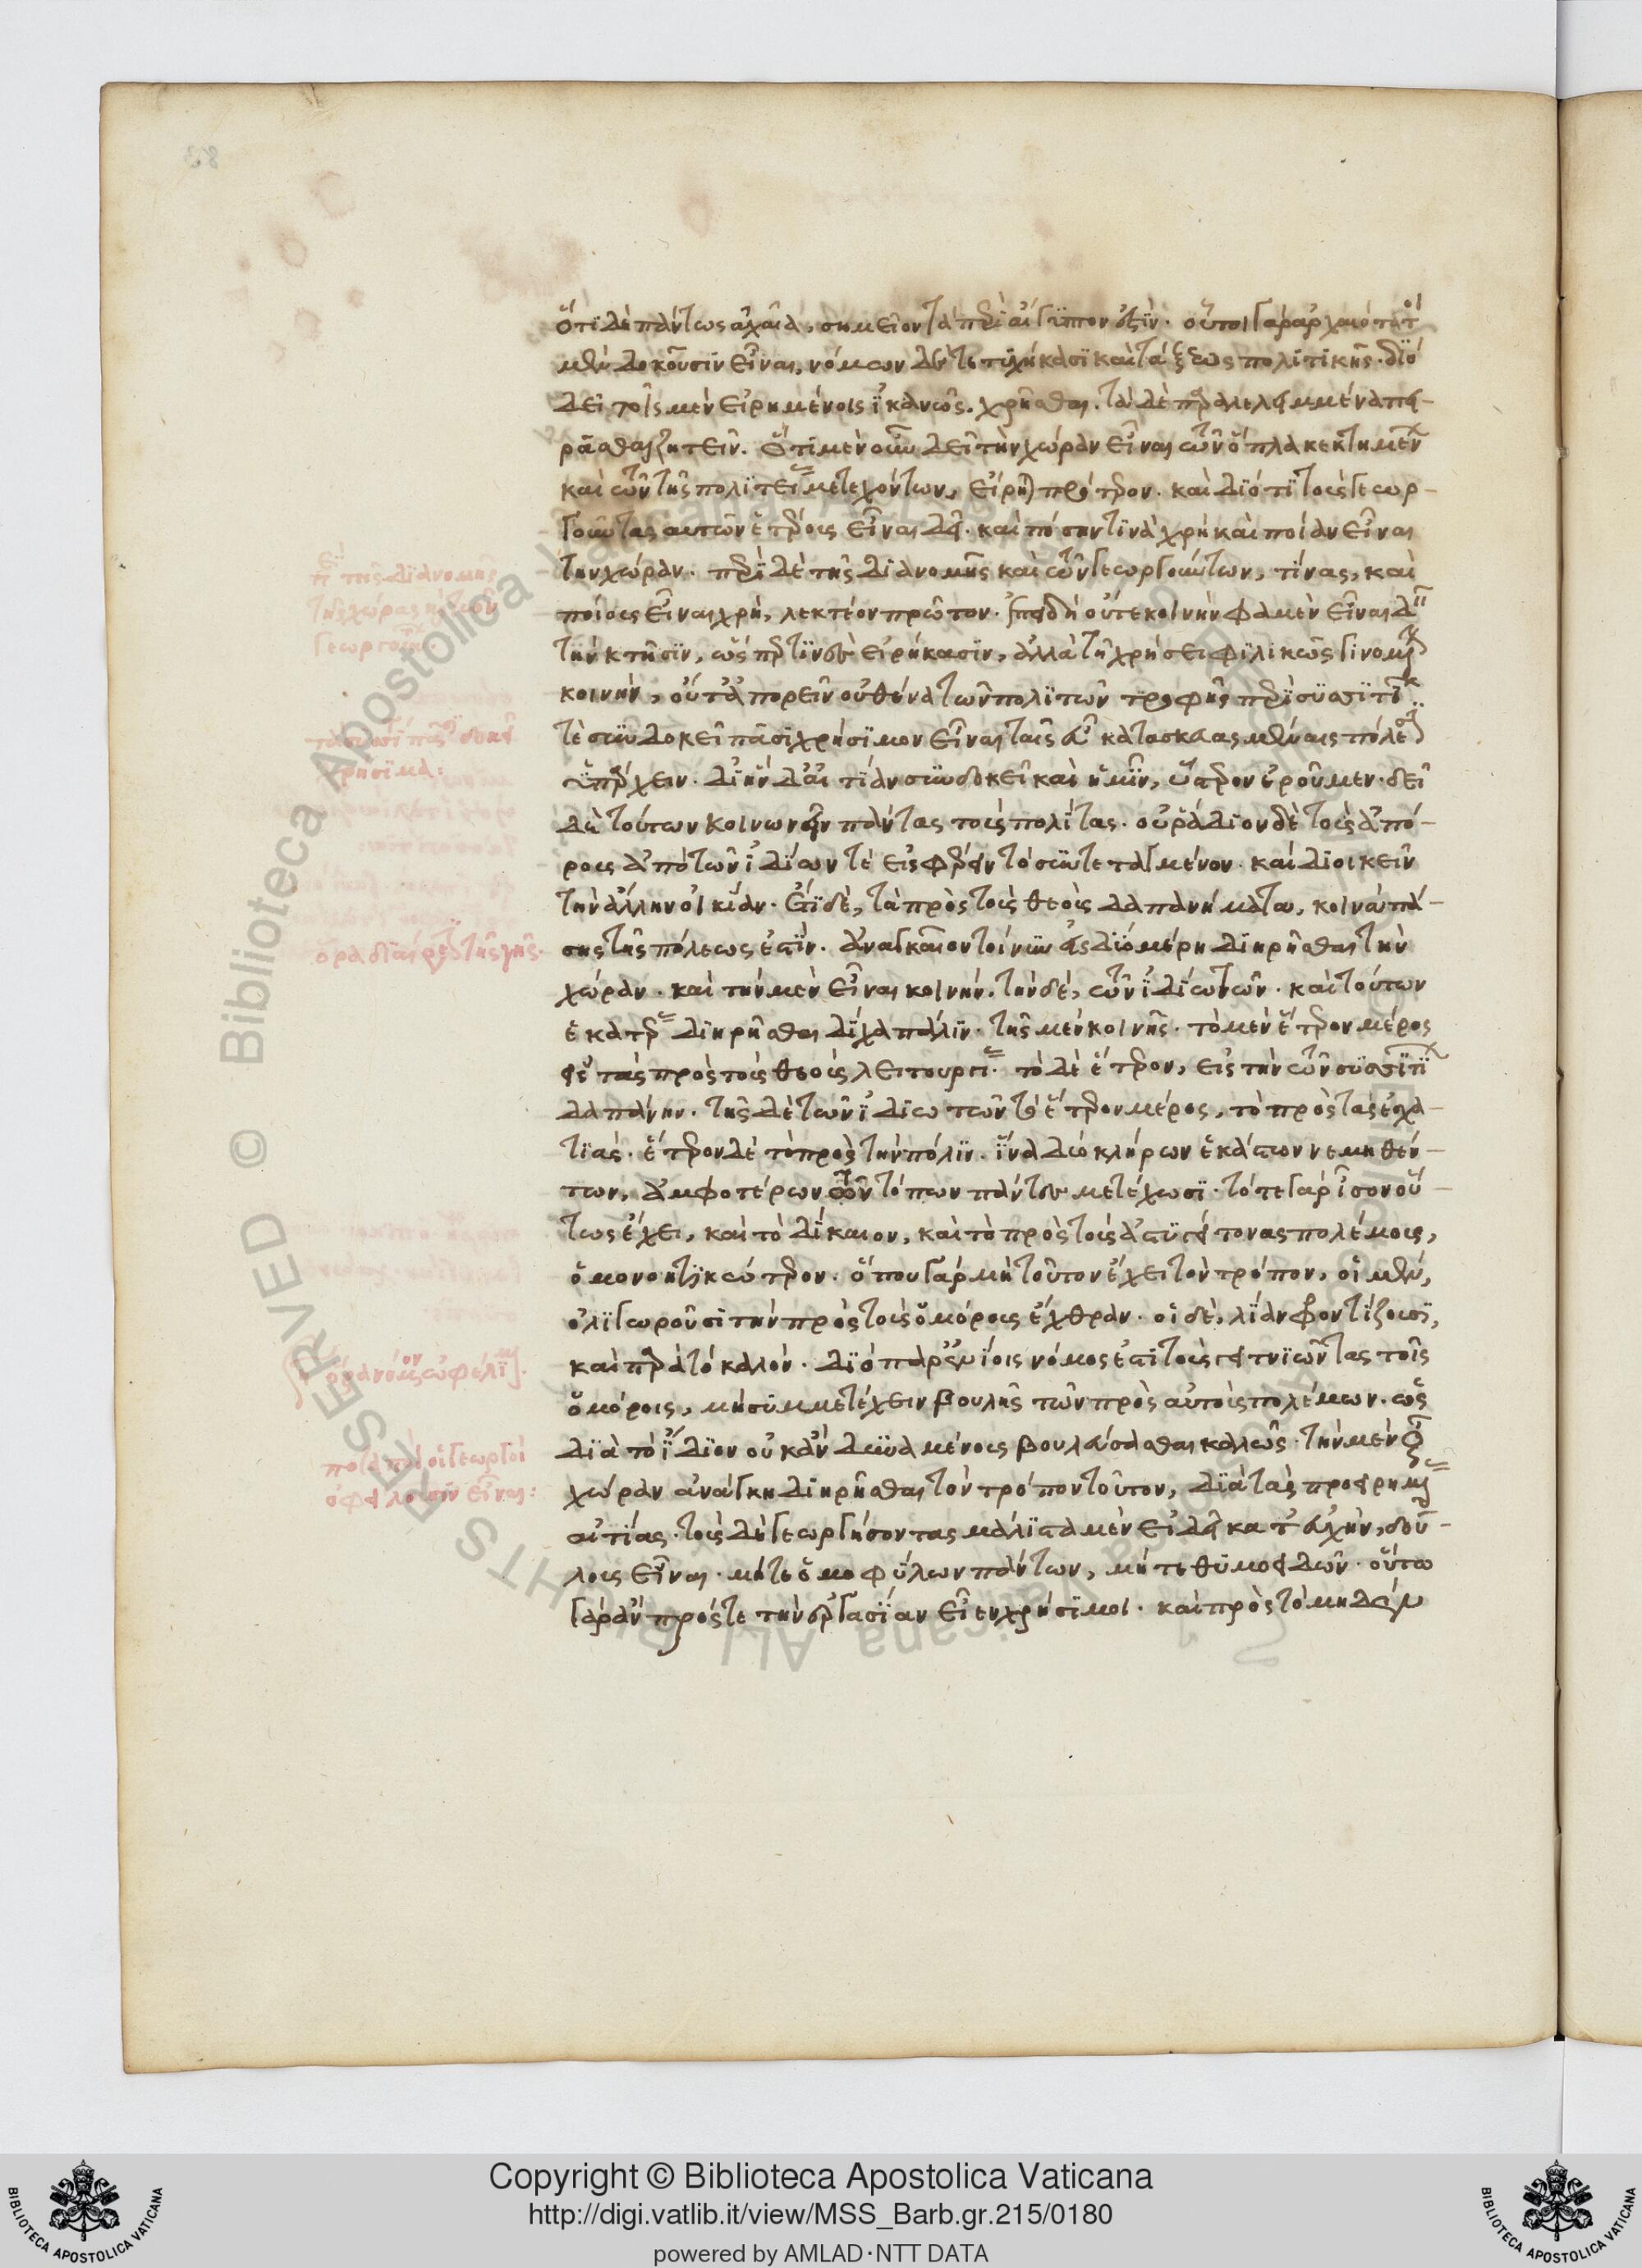 ὅτι δὲ πάντως ἀρχαῖα, σημεῖον τὰ περὶ αἴγυπτον ἐστίν. οὗτοι γὰρ ἀρχαιότατοι
μὲν δοκοῦσιν εἶναι, νόμων δὲ τετυχήκασι καὶ τάξεως πολιτικῆς. διὸ
δεῖ τοῖς μὲν εἰρημένοις ἱκανῶς. χρῆσθαι. τὰ δὲ παραλελειμμένα πει-
ρᾶσθαι ζητεῖν. ὅτι μὲν οὖν δεῖ τὴν χώραν εἶναι τῶν ὅπλα κεκτημένων
καὶ τῶν τῆς πολιτείας μετεχόντων, εἴρηται πρότερον. καὶ διότι τοὺς γεωρ-
γοῦντας αὐτῶν ἑτέρους εἶναι δεῖ. καὶ πόσην τινὰ χρὴ καὶ ποίαν εἶναι
τὴν χώραν. περὶ δὲ τῆς διανομῆς καὶ τῶν γεωργούντων, τίνας, καὶ
ποίους εἶναι χρὴ, λεκτέον πρῶτον. ἐπειδὴ οὔτε κοινήν φαμεν εἶναι δεῖν
τὴν κτῆσιν, ὥσπερ τινὲς εἰρήκασιν, ἀλλὰ τῇ χρήσει φιλικῶς γινομένην
κοινήν, οὔτ' ἀπορεῖν οὐθένα τῶν πολιτῶν τροφῆς περὶ συσσιτίων
τὲ συνδοκεῖ πᾶσι χρήσιμον εἶναι ταῖς εὖ κατασκευασμέναις πόλεσιν
ὑπάρχειν. δι' ἣν δ' αἰτίαν συνδοκεῖ καὶ ἡμῖν, ὕστερον ἐροῦμεν. δεῖ
δὲ τούτων κοινωνεῖν πάντας τοὺς πολίτας. οὐ ῥάδιον δὲ τοὺς ἀπό-
ρους ἀπὸ τῶν ἰδίων τὲ εἰσφέρειν τὸ συντεταγμένον. καὶ διοικεῖν
τὴν ἄλλην οἰκίαν. ἔτι δὲ, τὰ πρὸς τοὺς θεοὺς δαπανήματα, κοινὰ πά-
σης τῆς πόλεως ἐστίν. ἀναγκαῖον τοίνυν εἰς δύο μέρη διῃρῆσθαι τὴν
χώραν. καὶ τὴν μὲν εἶναι κοινήν. τὴν δὲ, τῶν ἰδιωτῶν. καὶ τούτων
ἑκατέραν διῃρῆσθαι δίχα πάλιν. τῆς μὲν κοινῆς. τὸ μὲν ἕτερον μέρος
εἰς τὰς πρὸς τοὺς θεοὺς λειτουργίας. τὸ δὲ ἕτερον, εἰς τὴν τῶν συσσιτίων
δαπάνην. τῆς δὲ τῶν ἰδιωτῶν τὸ ἕτερον μέρος, τὸ πρὸς τὰς ἐσχα-
τιάς. ἕτερον δὲ τὸ πρὸς τὴν πόλιν. ἵνα δύο κλήρων ἑκάστων νεμηθέν-
των, ἀμφοτέρων τῶν τόπων πάντες μετέχωσι. τό τε γὰρ ἴσον οὕ-
τως ἔχει, καὶ τὸ δίκαιον, καὶ τὸ πρὸς τοὺς ἀστυγείτονας πολέμους,
ὁμονοητικώτερον. ὅπου γὰρ μὴ τοῦτον ἔχει τὸν τρόπον, οἱ μὲν,
ὀλιγωροῦσι τὴν πρὸς τοὺς ὁμόρους ἔχθραν. οἱ δὲ, λίαν φροντίζουσι,
καὶ παρὰ τὸ καλόν. διὸ παρ' ἐνίοις νόμος ἐστὶ τοὺς γειτνιῶντας τοῖς
ὁμόροις, μὴ συμμετέχειν βουλῆς τῶν πρὸς αὐτοὺς πολέμων. ὡς
διὰ τὸ ἴδιον οὐκ ἂν δυναμένους βουλεύσασθαι καλῶς. τὴν μὲν οὖν
χώραν ἀνάγκη διῃρῆσθαι τὸν τρόπον τοῦτον, διὰ τὰς προειρημένας
αἰτίας. τοὺς δὲ γεωργήσοντας μάλιστα μὲν εἰ δεῖ κατ' εὐχὴν, δού-
λους εἶναι. μήτε ὁμοφύλων πάντων, μήτε θυμοειδῶν. οὕτω
γὰρ ἂν πρός τε τὴν ἐργασίαν εἶεν χρήσιμοι. καὶ πρὸς τὸ μηδὲν
περὶ τῆς διανομῆς
τῆς χώρας καὶ τῶν
γεωργούντων
χρήσιμα:
ὅρα διαίρεσιν τῆς γῆς.
ὅρα νόμον ὠφέλιμον.
ποταποὶ οἱ γεωργοὶ
ὀφείλουσιν εἶναι:
Copyright © Biblioteca Apostolica Vaticana
http://digi.vatlib.it/view/MSS_Barb.gr.215/0180
powered by AMLAD·NTT DATA
BIBLIOTECA APOSTOLICA VATICANA
BIBLIOTECA APOSTOLICA VATICANA